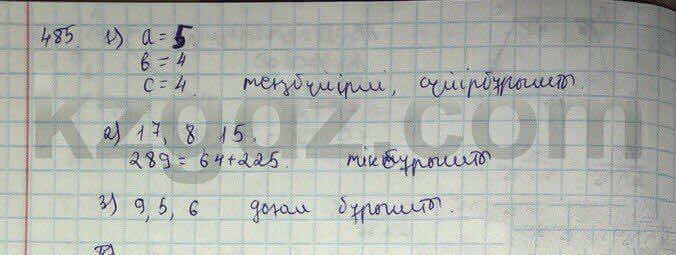 485. 1) a = 5.
b = 4
c = 4. теңбүйірлі, сүйірбұрышты.
2) 17, 8 15.
289 = 64 + 225. тікбұрышты
3) 9, 5, 6 доғал бұрышты.
kzgdz.com